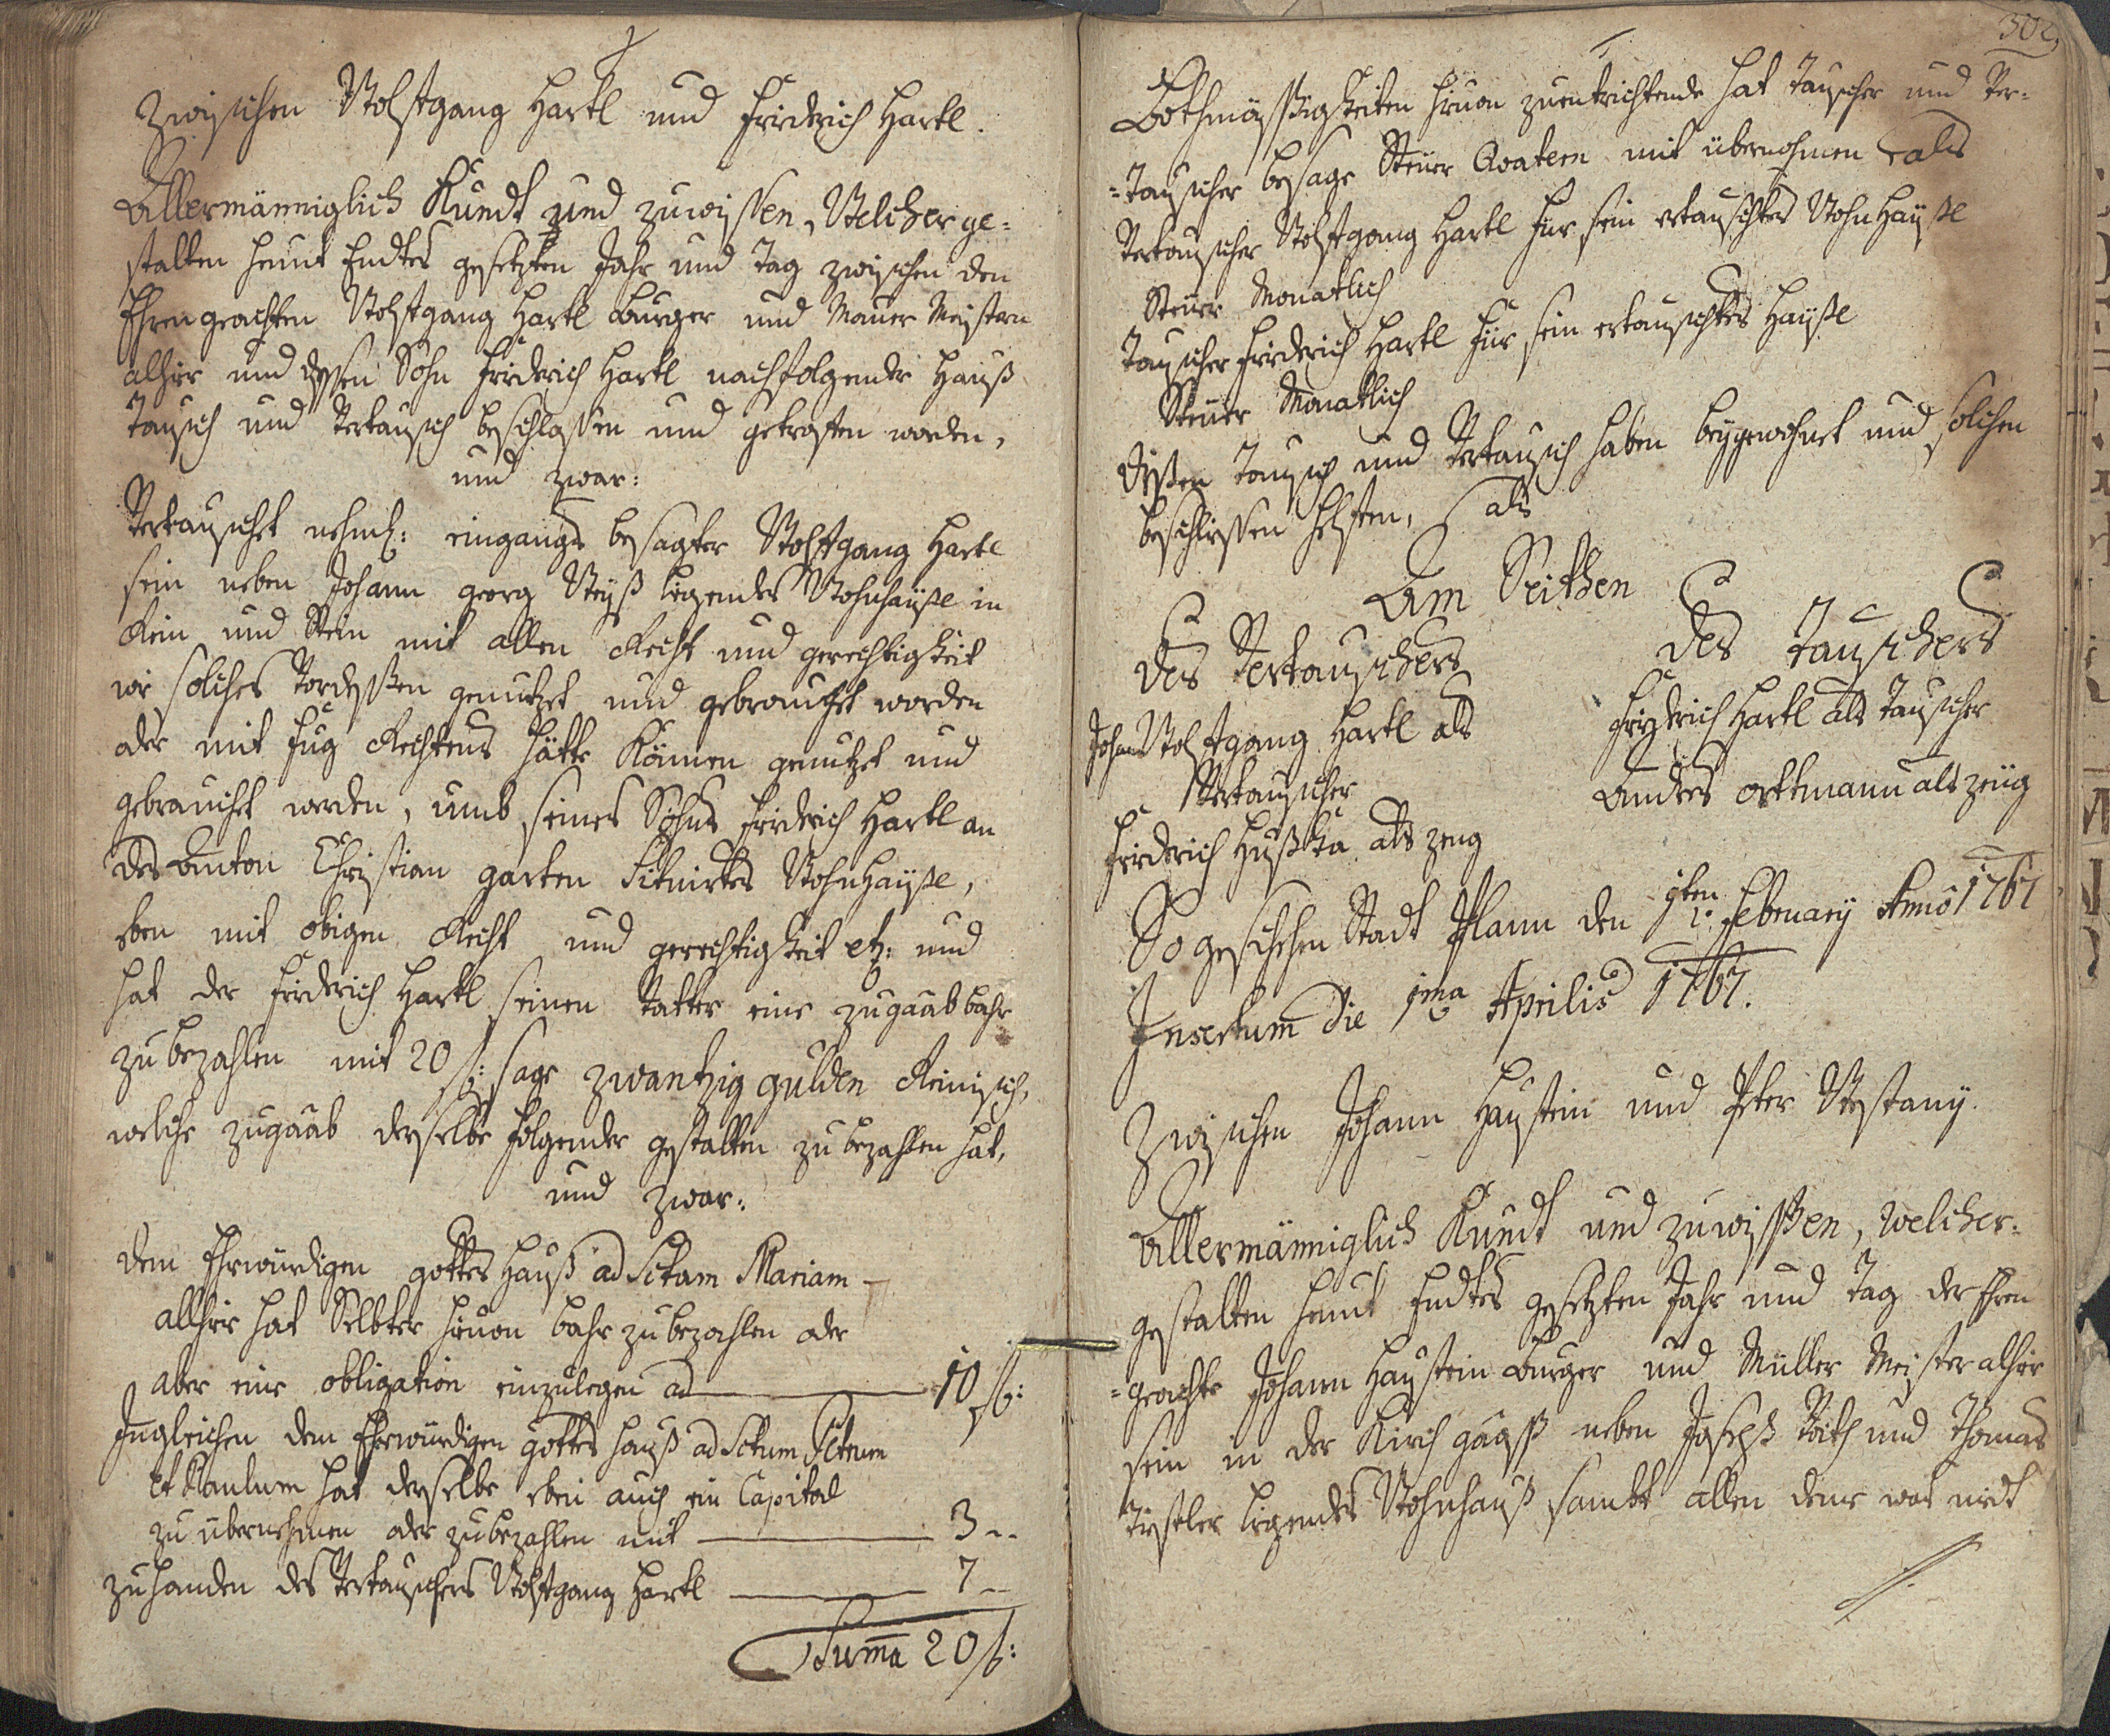 Zwischen Wolfgang Hartl und Friderich Hartl.
Allermänniglich Kundt und zuwissen, Welcher ge=
stalten heunt Endtes gesetzten Jahr und Tag zwischen den
Ehrengeachten Wolfgang Hartl Burger und Maurer Meistern
alhier und dessen Sohn Friderich Hartl nachfolgender Hauß
Tausch und Vertausch beschlossen und getroffen worden,
und zwar:
Vertauschet nehml: eingangs besagter Wolfgang Hartl
sein neben Johann Georg Weyß liegendes Wohnhäußl in
Rein und Stein mit allen Recht und gerechtigkeit
wie solches Vordessen genutzet und gebrauchet worden
oder mit fug Rechtens hätte Können genutzet und
gebrauchet werden, umb seines Sohns Friderich Hartl an
des Anton Christian garten Situirtes Wohnhäußl,
eben mit obigen Recht und gerechtigkeit etz: und
hat der Friderich Hartl seinen Vatter eine zugaab bahr
zu bezahlen mit 20 fl: sage zwantzig gulden Reinisch,
welche zugaab derselbe folgender gestalten zu bezahlen hat,
und zwar:
dem Ehrwürdigen gottes Hauß ad Sctam Mariam
allhier hat Selbter hievon bahr zu bezahlen oder
aber eine obligation einzulegen ad 10 fl:
Ingleichen dem Ehrwürdigen gottes Hauß ad Sctum Petrum
et Paulum hat derselbe eben auch ein Capital
zu übernehmen oder zu bezahlen mit 3 --
zuhanden des Vertauschers Wolfgang Hartl 7 --
Summa 20 fl:
302
Bothmässigkeiten hievon zuentrichtende hat Tauscher und Ver=
=tauscher besage Steuer Quatern mit übernohmen als
Vertauscher Wolfgang Hartl für sein ertauschtes Wohn Häußl
Steuer Monatlich
Tauscher Friderich Hartl für sein ertauschtes Häußl
Steuer Monatlich
dißen Tausch und Vertausch haben beygewohnet und solchen
beschliessen helfen, als
Am Seithen
des Vertauschers
des Tauschers
Johann Wolfgang Hartl als
Vertauscher
Friederich Hartl als Tauscher
Friderich als zeug
Andres ortmann als zeüg
So geschehen Stadt Plann den 1ten February Anno 1767
Insertum die 1ma Aprilis 1767.
Zwischen Johann Haustein und Peter
Allermänniglich Kundt und zuwissen, welcher=
gestalten heunt Endtes gesetzten Jahr und Tag der Ehren
=geachte Johann Haustein Burger und Müller Meister alhier
sein in der Kirch gaß neben Joseph und Thomas
liegendes Wohnhauß sambt allen deme was nieth